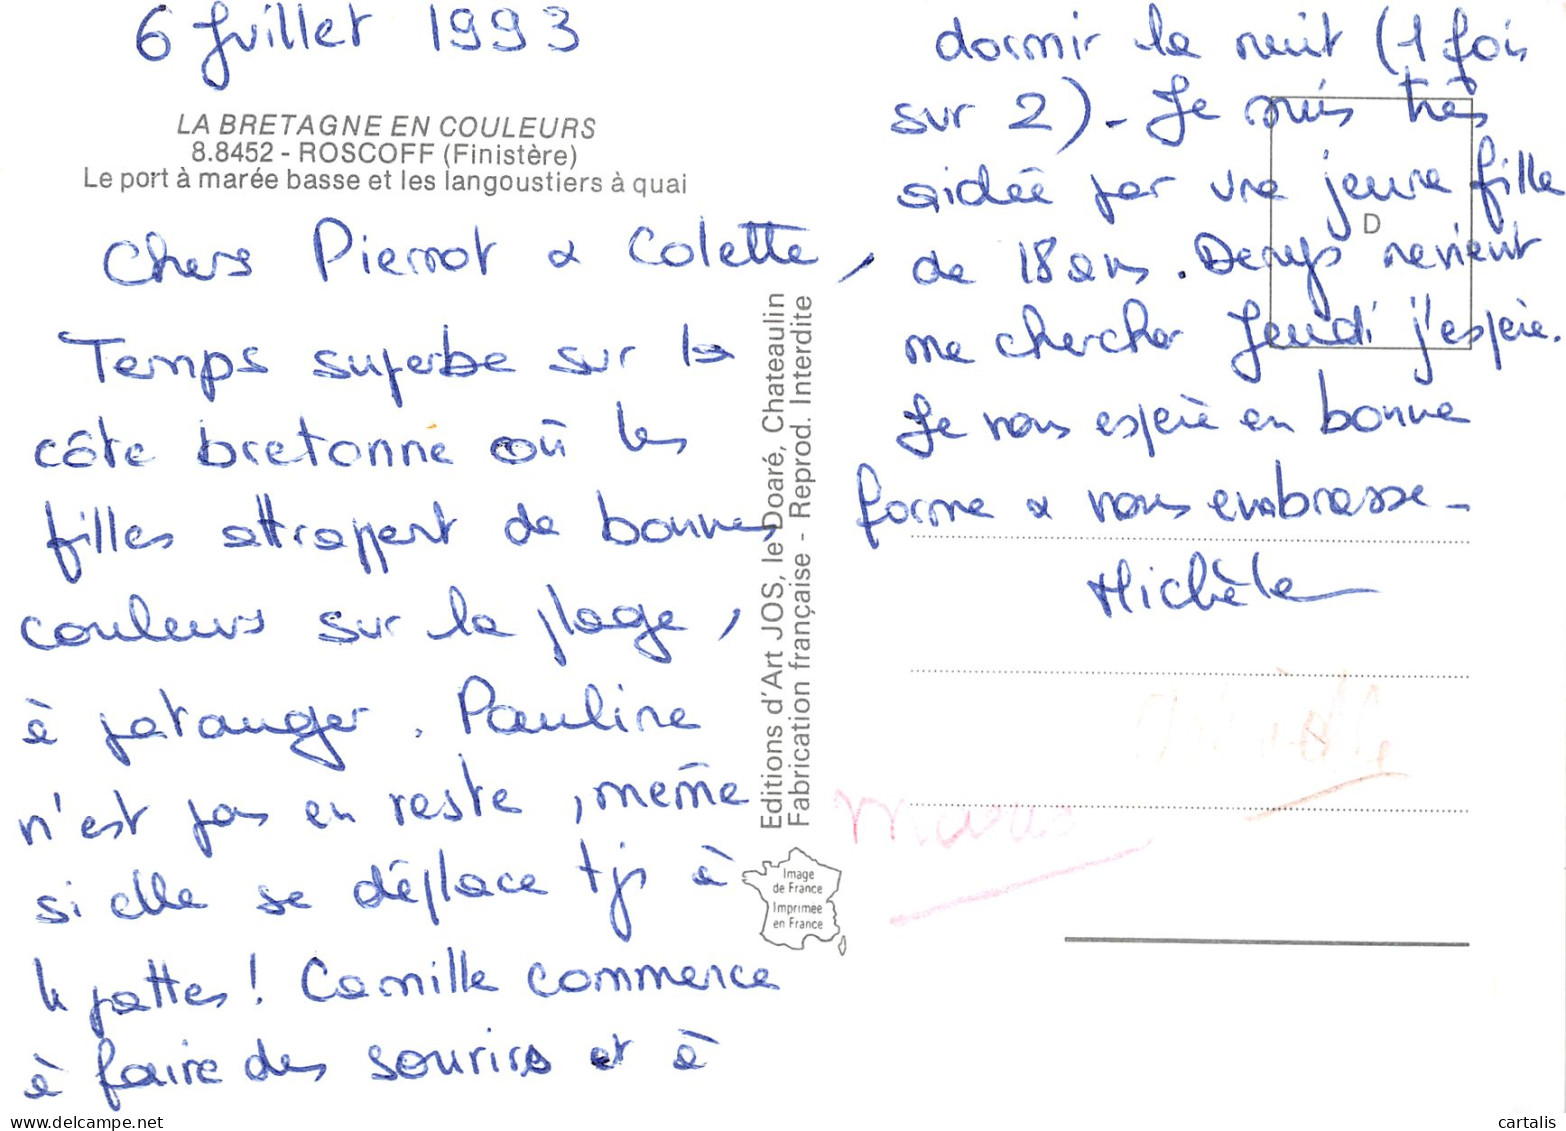 6 Juillet 1993
LA BRETAGNE EN COULEURS
8.8452 - ROSCOFF (Finistère)
Le port à marée basse et les langoustiers à quai
Chers Pierrot & Colette,
Temps superbe sur la
côte bretonne où les
filles attrapent de bonnes
couleurs sur la plage,
à patauger. Pauline
n'est pas en reste, même
si elle se déplace tjs à
4 pattes! Camille commence
à faire des sourires et à
dormir la nuit (1 fois
sur 2)- Je suis très
aidée par une jeune fille
de 18 ans. Denys revient
me chercher Jeudi j'espère.
Je vous espère en bonne
forme & vous embrasse-
Michèle
Marie
D
Editions d'Art JOS, le Doaré, Chateaulin
Fabrication française - Reprod. Interdite
Image
de France
Imprimée
en France
cartalis